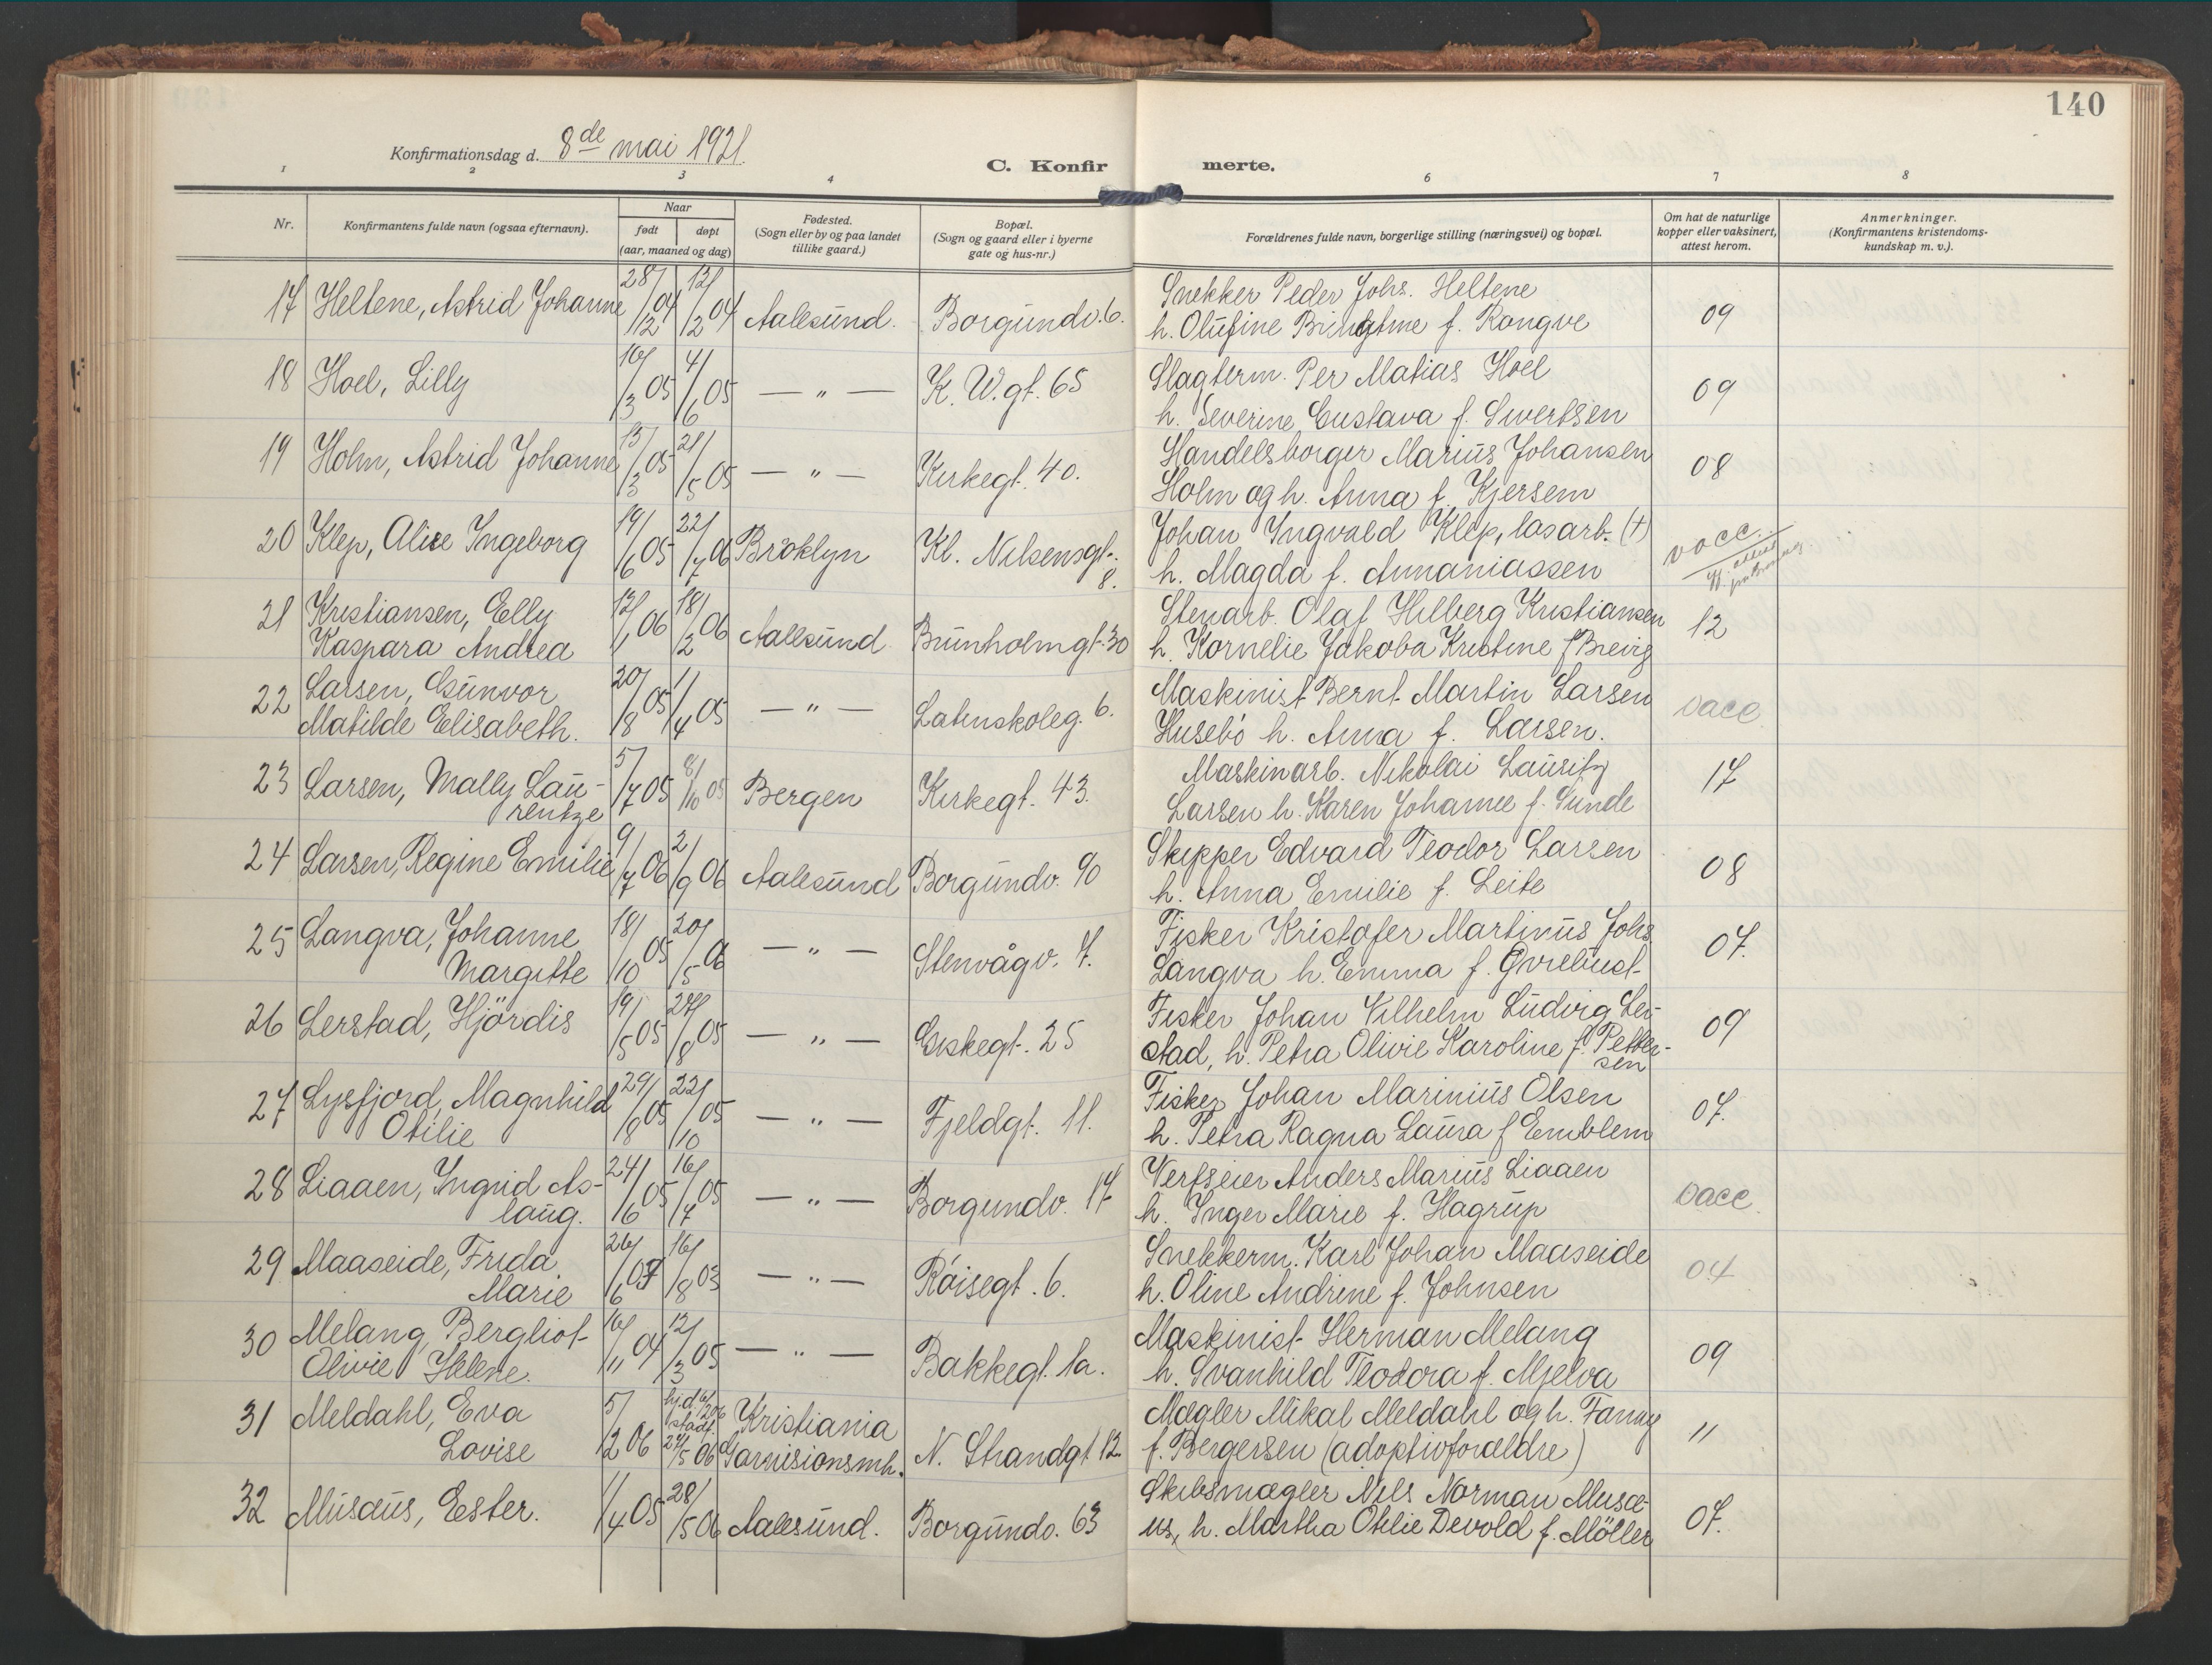 140
Konfirmationsdag d. 8de mai 1921.
C. Konfirmerte.
1 2 3 4 6 7 8
Nr. Konfirmantens fulde navn (ogsaa efternavn). Naar født døpt (aar, maaned og dag) Fødested. (Sogn eller by og paa landet tillike gaard.) Bopæl. (Sogn og gaard eller i byerne gate og hus-nr.) Forældrenes fulde navn, borgerlige stilling (næringsvei) og bopæl. Om hat de naturlige kopper eller vaksinert, attest herom. Anmerkninger. (Konfirmantens kristendomskundskap m. v.).
17 Heltene, Astrid Johanne 28/12 04 12/2 04 Aalesund. Borgundv. 6. Snekker Peder Johs. Heltene
h. Olufine f. Rongve 09
18 Hoel, Lilly 16/3 05 4/6 05 — „ — K. W. gt. 65 Slagterm. Per Matias Hoel
h. Severine Gustava f. Sivertsen 09
19 Holm, Astrid Johanne 15/3 05 21/5 05 — „ — Kirkegt. 40. Handelsborger Marius Johansen
Holm og h. Anna f. Kjersem 08
20 Klep, Alice Ingeborg 19/6 05 22/7 06 Broklyn Kl. Nilsensgt. 8. Johan Ingvald Klep, løsarb. (†)
h. Magda f. Annaniassen vacc.
21 Kristiansen, Elly
Kaspara Andrea 12/1 06 18/2 06 Aalesund Bunholmgt. 30 Stenarb. Olaf Hilberg Kristiansen
h. Kornelie Jakoba Kristine f Breivig 12
22 Larsen, Gunvor
Matilde Elisabeth. 20/8 05 1/4 05 — „ — Latinskoleg. 6. Maskinist Bernt Martin Larsen
Husebö h. Anna f. Larsen. vacc.
23 Larsen, Mally Lau-
rentze 5/7 05 8/10 05 Bergen Kirkegt. 43. Maskinarb. Nikolai Lauritz
Larsen h. Karen Johanne f. Sunde 17
24 Larsen, Regine Emilie 9/7 06 2/9 06 Aalesund Borgundv. 90 Skipper Edvard Teodor Larsen
h. Anna Emilie f. Leite 08
25 Langva, Johanne
Margitte 18/10 05 20/5 06 — „ — Stenvågv. 7. Fisker Kristofer Martinus Johs
Langva h. Emma f. Gvrebust 07.
26 Lerstad, Hjördis 19/5 05 27/8 05 — „ — Giskegt. 25 Fisker Johan Vilhelm Ludvig Ler-
stad, h. Petra Olivie Karoline f. Petter-
sen 09
27 Lysfjord, Magnhild
Otilie 29/8 05 22/10 05 — „ — Fjeldgt. 11. Fisker Johan Marinius Olsen
h. Petra Ragna Laura f Emblem 07.
28 Liaaen, Ingrid As-
laug. 24/6 05 16/7 05 — „ — Borgundv. 17 Verfseier Anders Marius Liaaen
h. Inger Marie f. Hagrup vacc.
29 Maaseide, Frida
Marie 26/6 16/8 03 — „ — Röisegt. 6. Snekkerm. Karl Johan Maaseide
h. Oline Andrine f. Johnsen 04
30 Melang, Bergliot
Olivie Helene. 16/11 04 12/3 05 — „ — Bakkegt. 1a. Maskinist Herman Melang
h. Svanhild Teodora f. Mjelva 09
31 Meldahl, Eva
Lovise 5/2 06 hj.d. 6/2 06 stadf. 24/5 06 Kristiania
Garnisionsmh. N. Strandgt. 12 Mægler Mikal Meldahl og h. Fanny
f. Bergersen (adoptivforældre) 11
32 Musæus, Ester. 1/4 05 28/5 06 Aalesund. Borgundv. 63 Skibsmægler Nils Norman Musæ-
us, h. Martha Otilie Devold f. Möller 07.